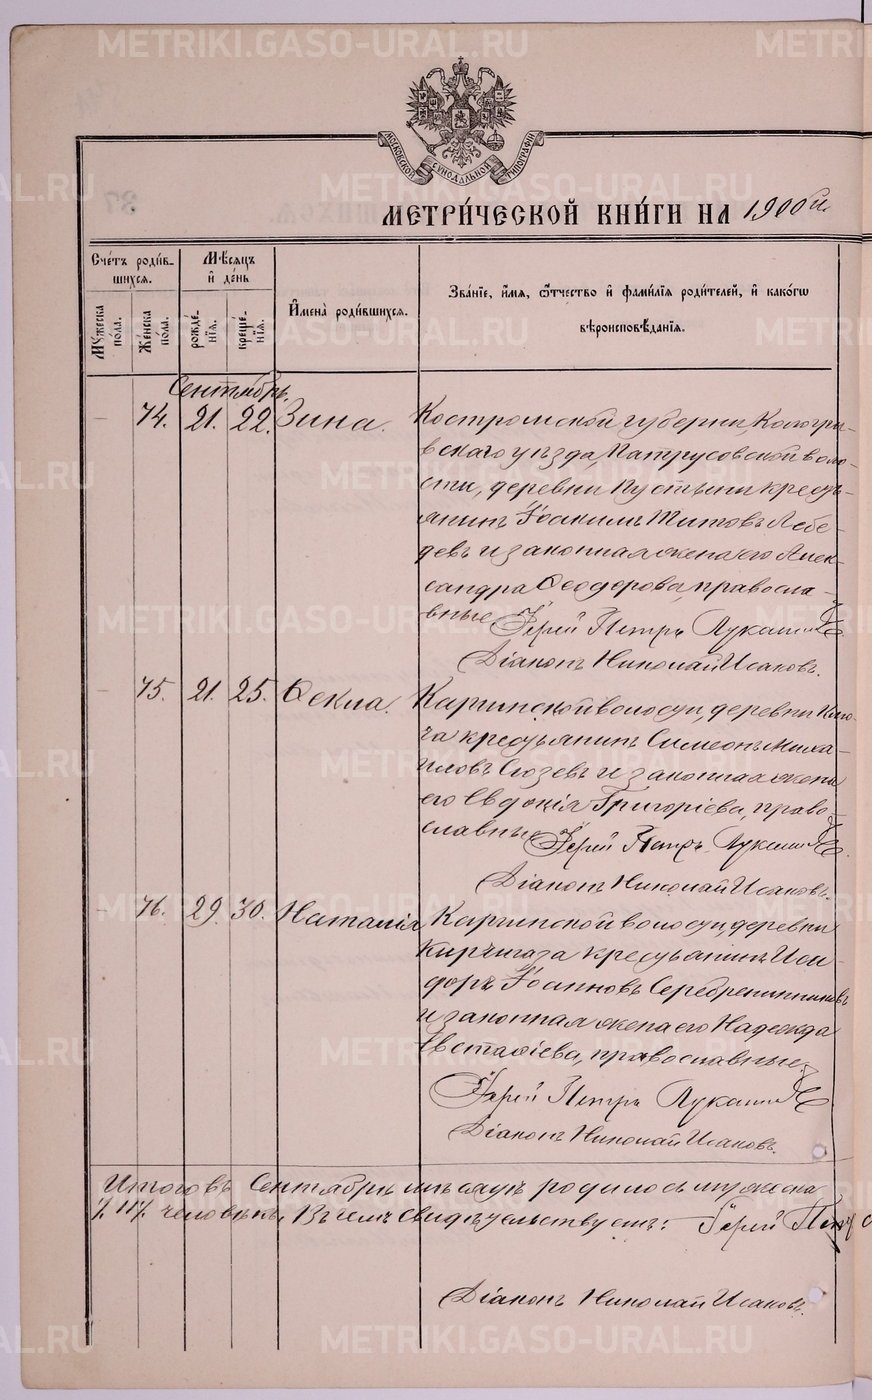 METRIKI.GASO-URAL.RU
МОСКОВСКОЙ СУНОДАЛЬНОЙ ТИПОГРАФИИ
МЕТРИ́ЧЕСКОЙ КНИ́ГИ НА 1900й.
Сче́тъ роди́вшихся.
Мѣ́сяцъ и де́нь
Имена̀ роди́вшихся.
Зва́нїе, и́мя, ѻ҆́тчество и фами́лїя роди́телей, и како́гѡ
вѣроисповѣ́данїя.
Мꙋ́жеска по́ла.
Же́нска по́ла.
рожде́нїя.
креще́нїя.
Сентябрь.
— 74. 21. 22. Зина. Костромской губерніи, Кологри-
вскаго уѣзда, Матрусовской воло-
сти, деревни Пустыни кресть-
янинъ Іоакимъ Титовъ Лебе-
девъ и законная жена его Алек-
сандра Ѳеодорова, православ-
вные Іерей Петръ Лукан
Діаконъ Николай Исаковъ.
— 75. 21. 25. Ѳекла. Каргинской волости, деревни
ча крестьянинъ Симеонъ Миха-
иловъ Сюзевъ и законная жена
его Евдокія Григоріева, право-
славные Іерей Петръ Лукан
Діаконъ Николай Исаковъ.
— 76. 29. 30. Наталія Каргинской волости, деревни
Киргишаза крестьянинъ Иси-
доръ Іоанновъ Серебренниковъ
и законная жена его Надежда
Евстафіева, православные.
Іерей Петръ Лукан
Діаконъ Николай Исаковъ.
Итого въ Сентябрѣ мѣсяцѣ родилось мужеска
человѣкъ. Въ чемъ свидѣтельствуемъ: Іерей Петръ
Діаконъ Николай Исаковъ.